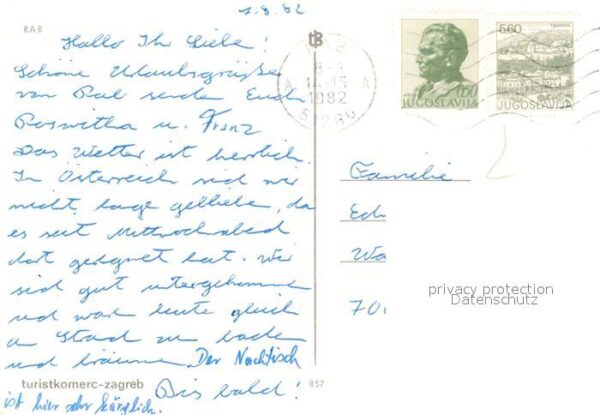 7.8.82
RAB
Hallo Ihr Liebe!
Schöne Urlaubsgrüße
von Rab senden Euch
Roswitha u. Franz
Das Wetter ist herrlich.
In Österreich sind wir
nicht lange geblieben, da
es seit Mittwochabend
dort geregnet hat. Wir
sind gut untergekommen
und war heute gleich
am Strand zum baden
und bräunen. Der Nachtisch
ist hier sehr kärglich.
Bis bald!
turistkomerc-zagreb
857
tz
RAB
1982
51280
0.50
JUGOSLAVIJA
5.60
JUGOSLAVIJA
Familie
Ech
Wa
70
privacy protection
Datenschutz